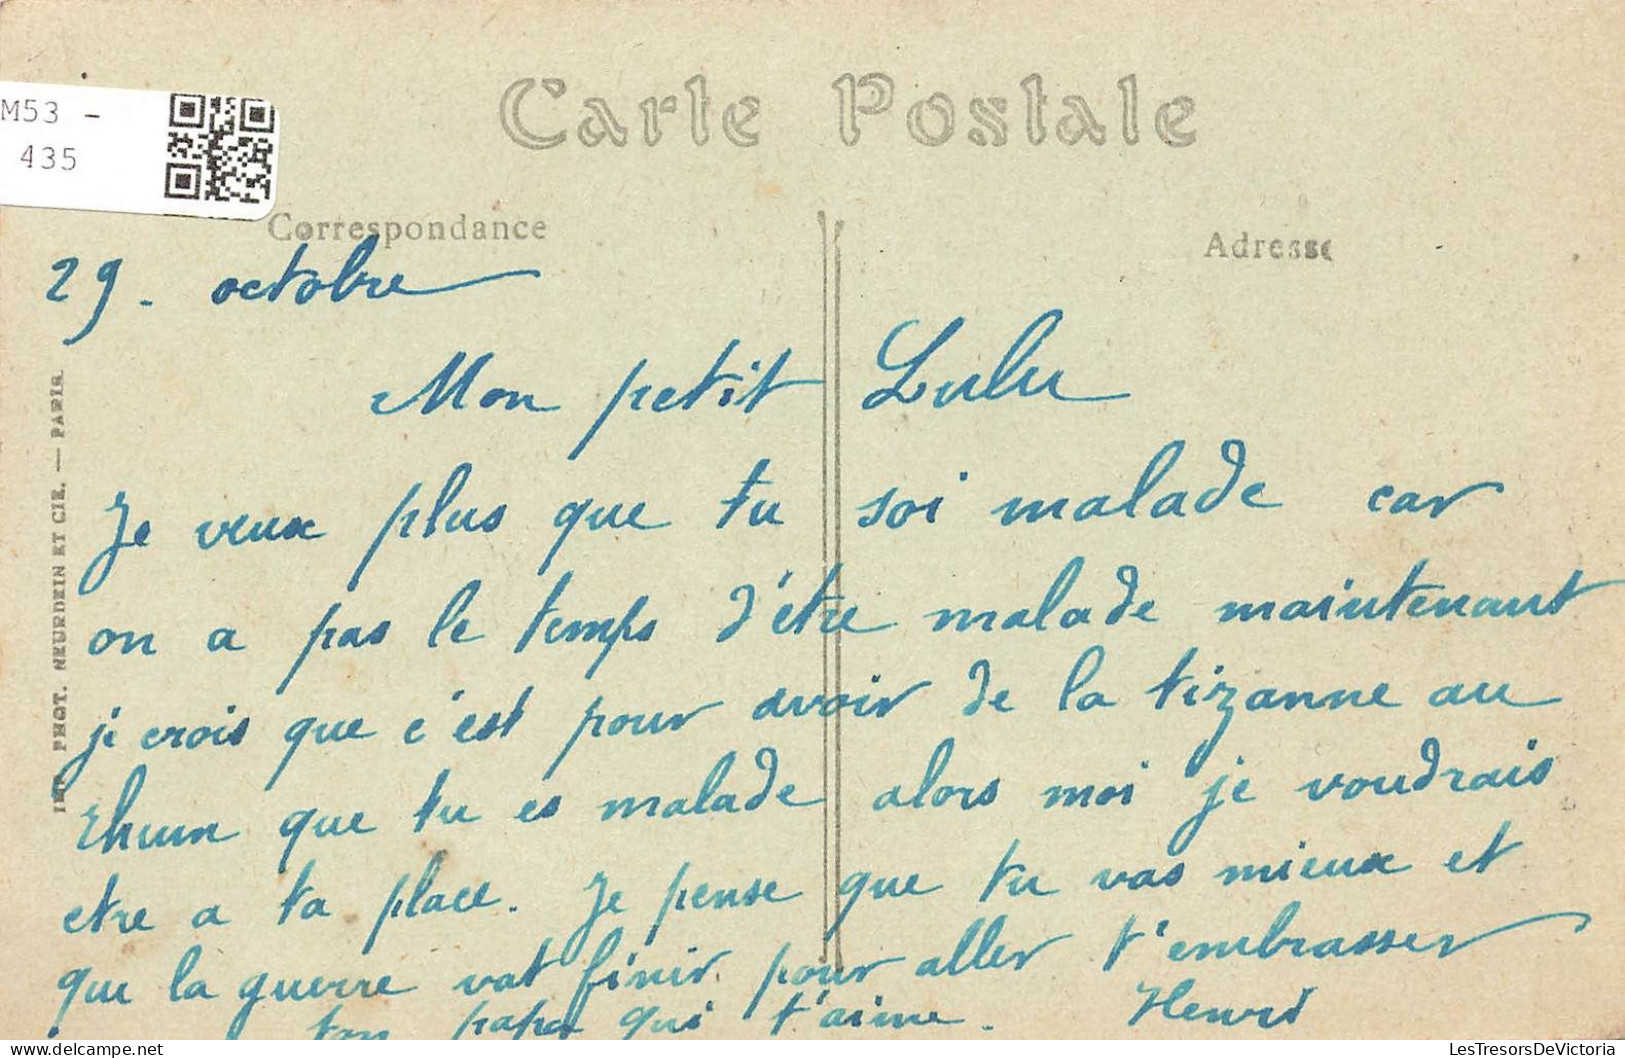 M53 -
435
Carte Postale
Correspondance
Adresse
29. octobre
Mon petit Lulu
Je veux plus que tu soi malade car
on a pas le temps d'être malade maintenant
je crois que c'est pour avoir de la tizanne au
rhum que tu es malade alors moi je voudrais
etre a ta place. Je pense que tu vas mieux et
que la guerre vat finir pour aller t'embrasser
ton papa qui t'aime. Henri
IMP. PHOT. NEURDEIN ET CIE. — PARIS.
LesTresorsDeVictoria